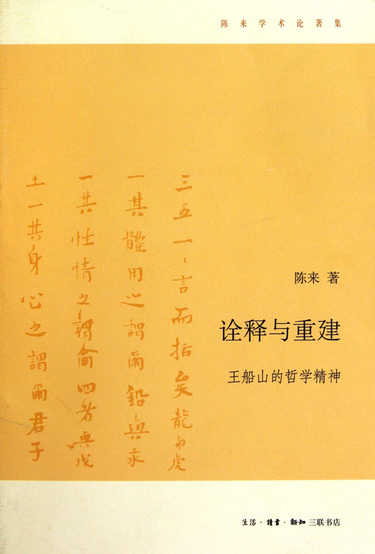 陈来学术论著集
三五一、言而括矣龍水虎
一其體用之謂爾鉛與汞
一其性情之謂爾四者與戊
土一其身心之謂爾君子
陈来 著
诠释与重建
王船山的哲学精神
生活·讀書·新知 三联书店